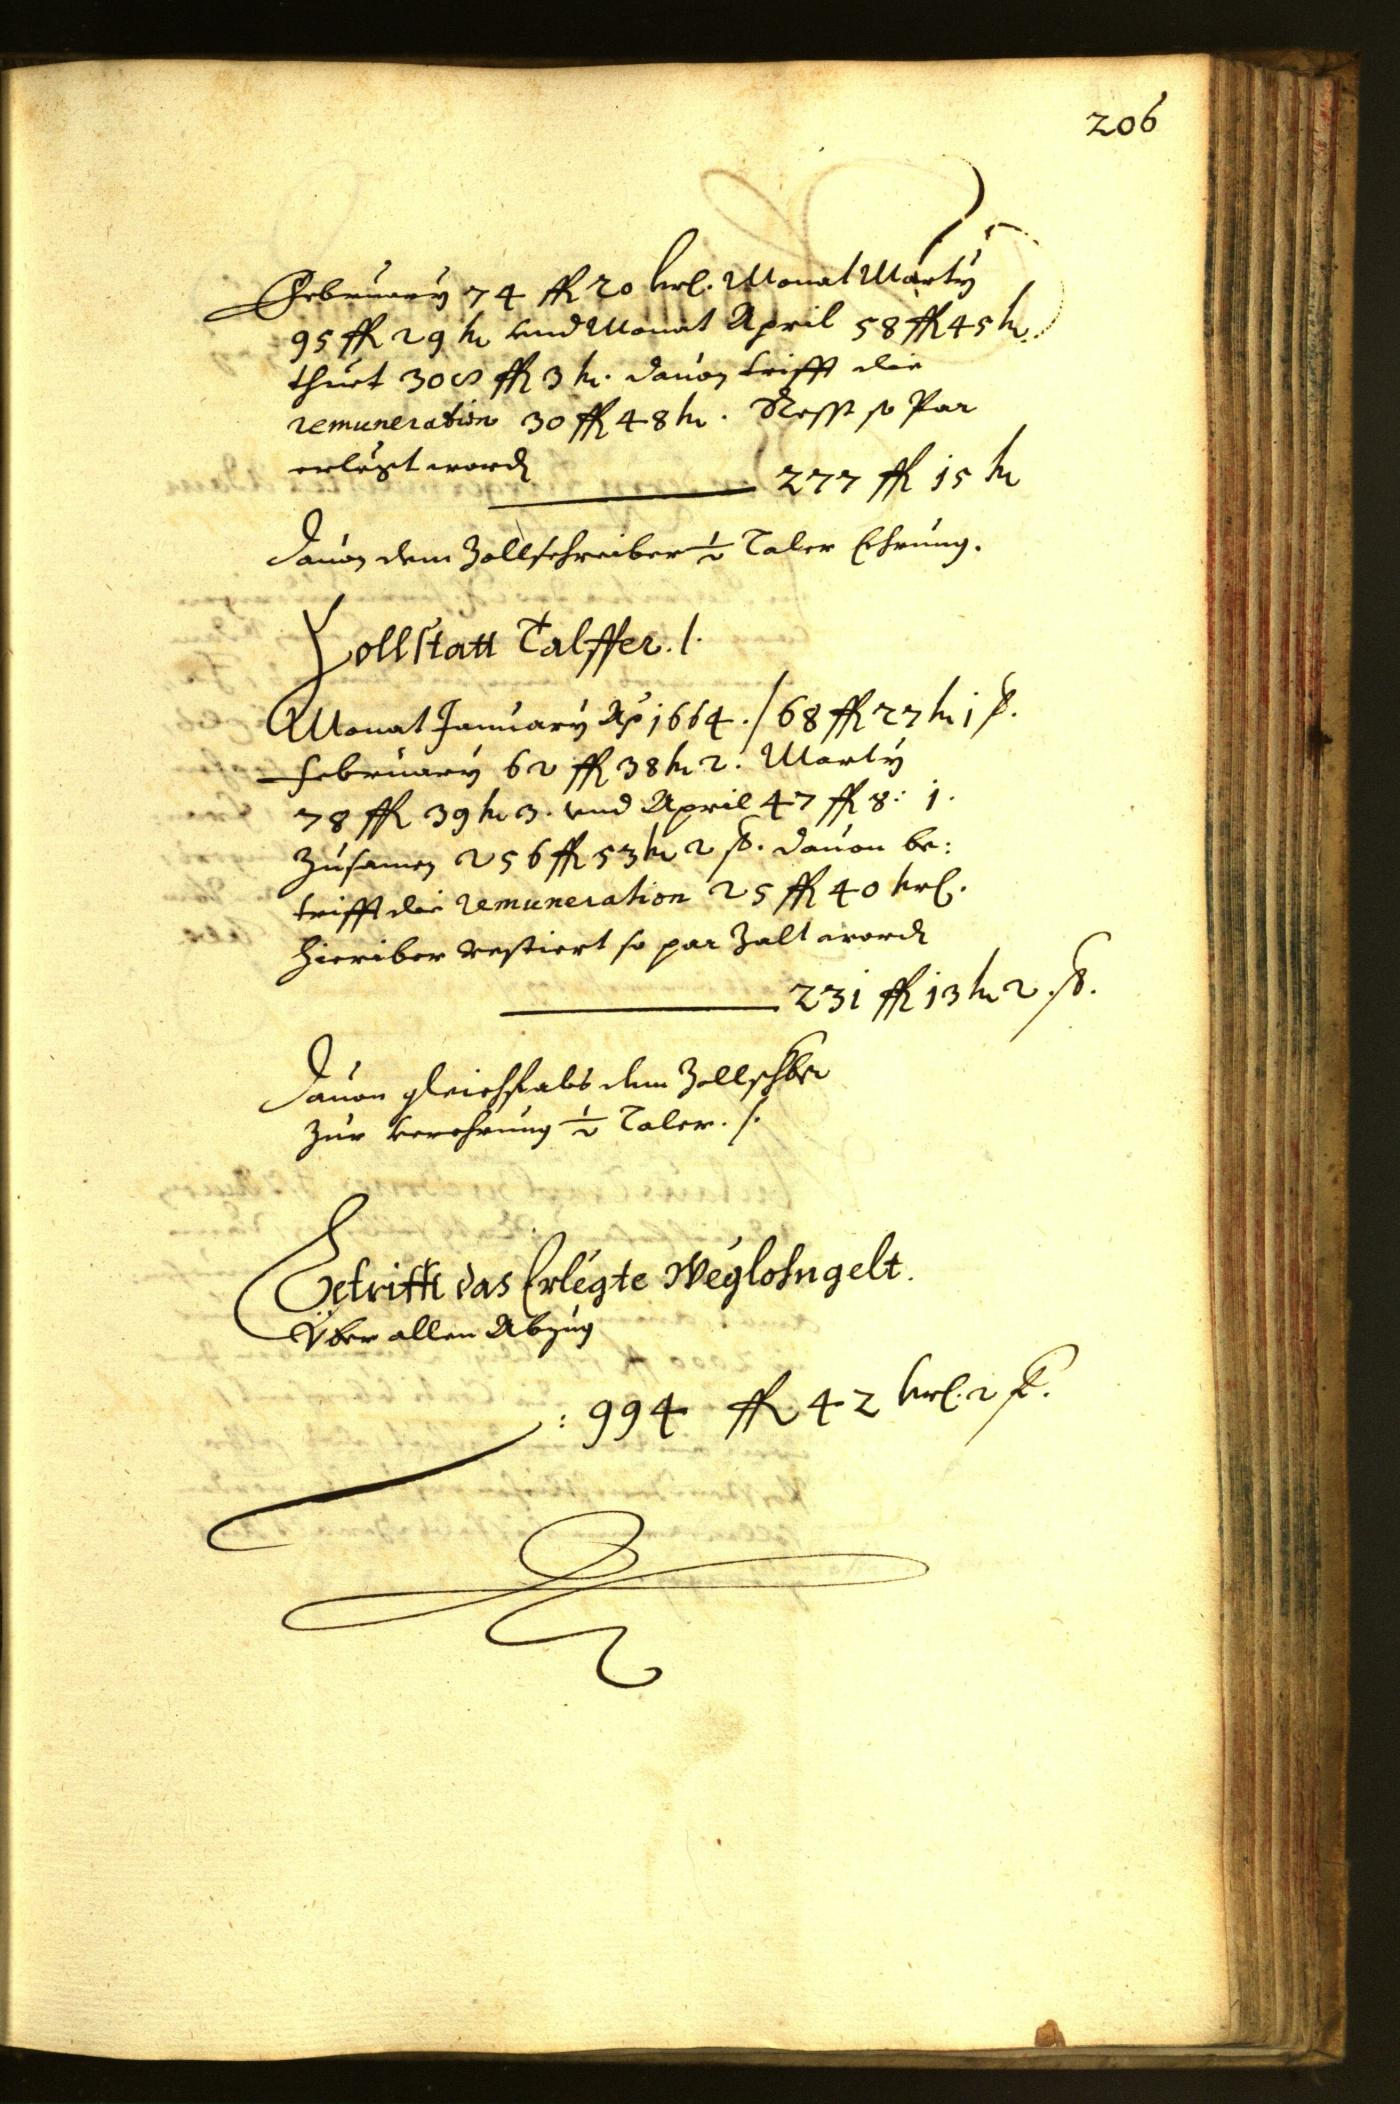 206
February 74 fl 20 krl. Monat Marty
95 fl 29 kr vnd Monat April 58 fl 45 kr.
thuet 308 fl 3 kr. dauon trifft die
remuneration 30 fl 48 kr. Resst so Par
erlegt word
277 fl 15 kr
dauon dem Zollschreiber ½ Taler Ehrung.
Zollstatt Talffer. /.
Monat January Ao 1664. / 68 fl 27 kr 1 f.
February 62 fl 38 kr 2. Marty
78 fl 39 kr 3. vnd April 47 fl 8: 1.
Zusamen 256 fl 53 kr 2 f. dauon be:
trifft die remuneration 25 fl 40 krl.
hieriber restiert so par Zalt word
231 fl 13 kr 2. f.
dauon gleichfals dem Zollschber
Zur verehrung ½ Taler. /.
Betrifft das Erlegte Weglohngelt.
Über allen Abzug
: 994 fl 42 krl. 2 f.